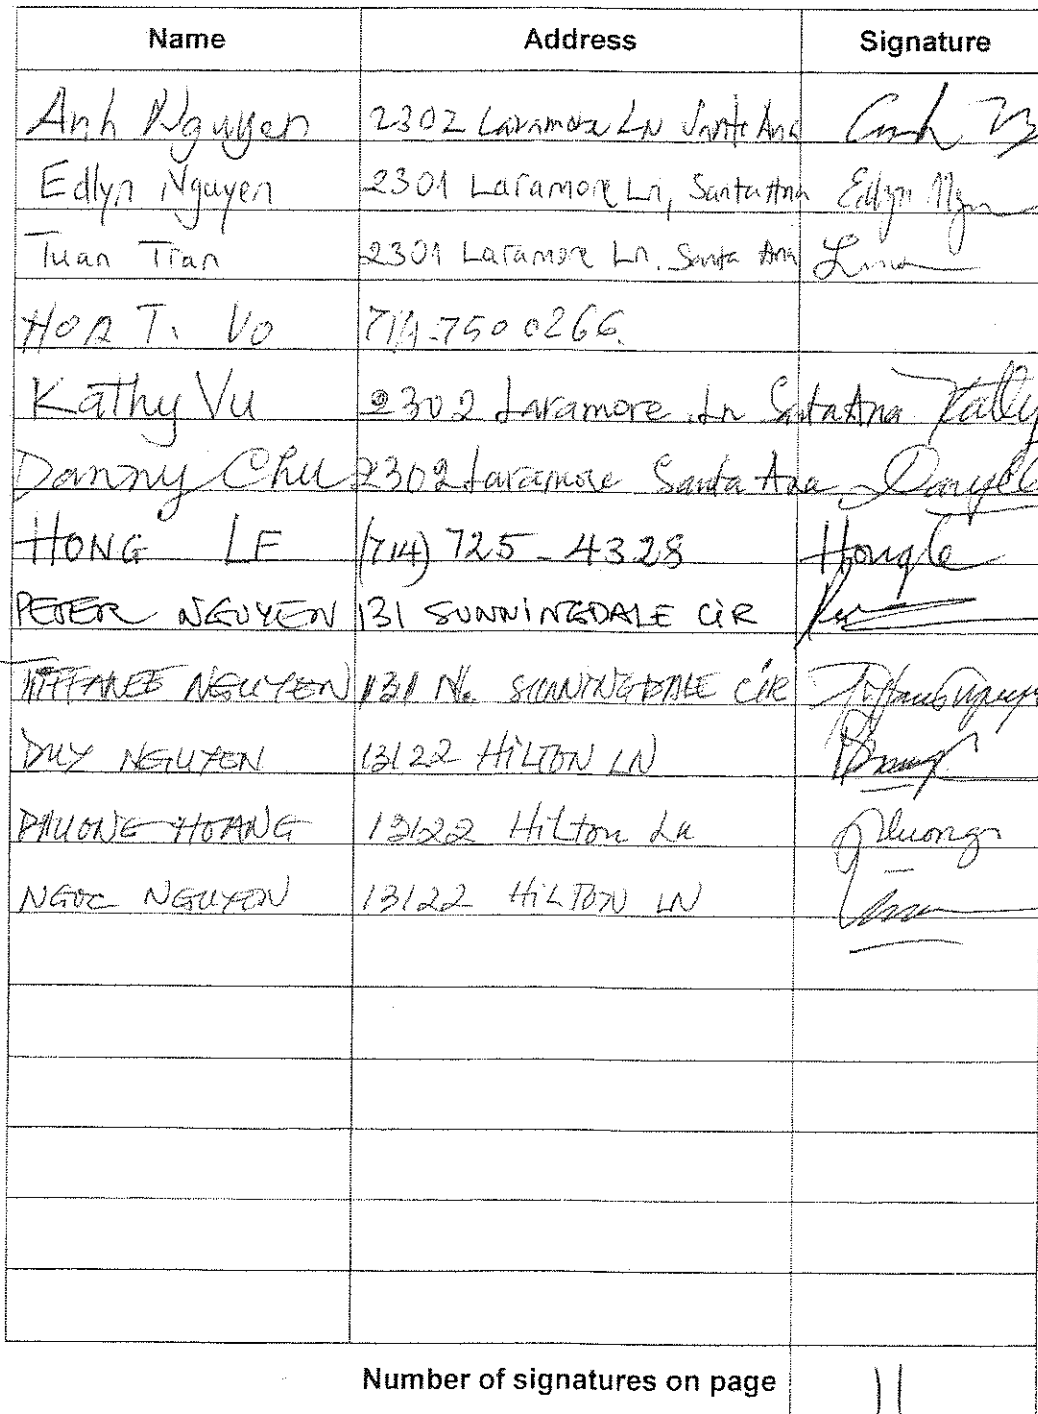 Name Address Signature
Anh Nguyen 2302 Laramore Ln Santa Ana
Edlyn Nguyen 2301 Laramore Ln, Santa Ana Edlyn Ngu
Tuan Tran 2301 Laramore Ln. Santa Ana
Hoa T. Vo 714-750 0266.
Kathy Vu 2302 Laramore Ln Santa Ana Kathy
Danny Chu 2302 Laramore Santa Ana
HONG LE (714) 725-4328 Hongle
PETER NGUYEN 131 SUNNINGDALE CIR
TIFFANEE NGUYEN 131 N. SUNNINGDALE CIR
DUY NGUYEN 13122 HILTON LN
PHUONG HOANG 13122 Hilton Ln Phuong
NGOC NGUYEN 13122 HILTON LN
Number of signatures on page 11